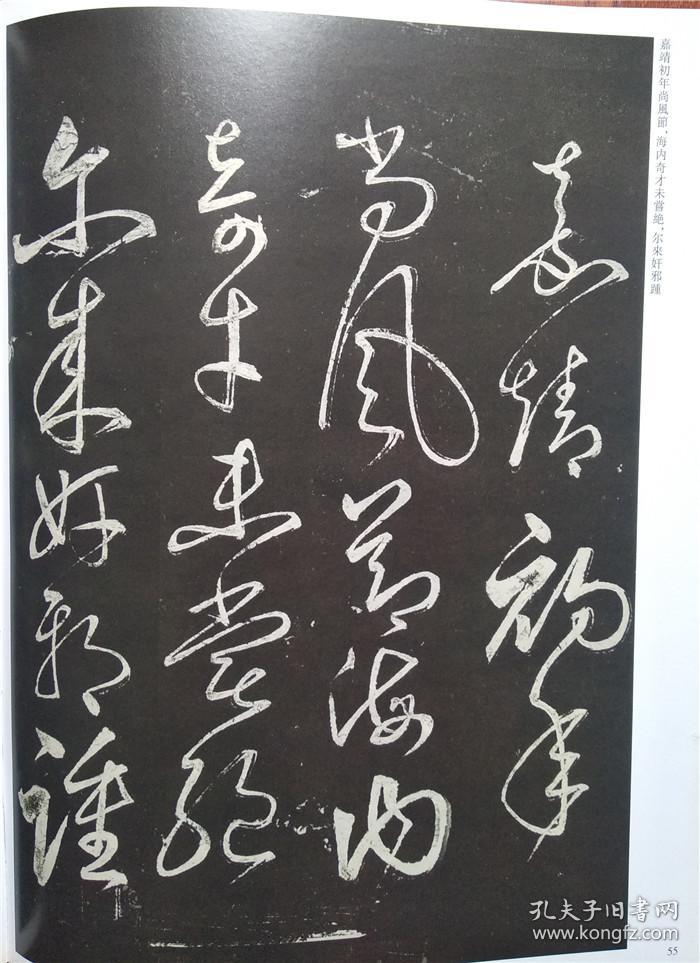 嘉靖初年尚風節，海内奇才未嘗絶，尔來奸邪踵
嘉靖初年
尚風節海内
奇才未嘗絶
尔來奸邪踵
孔夫子旧书网
www.kongfz.com
55